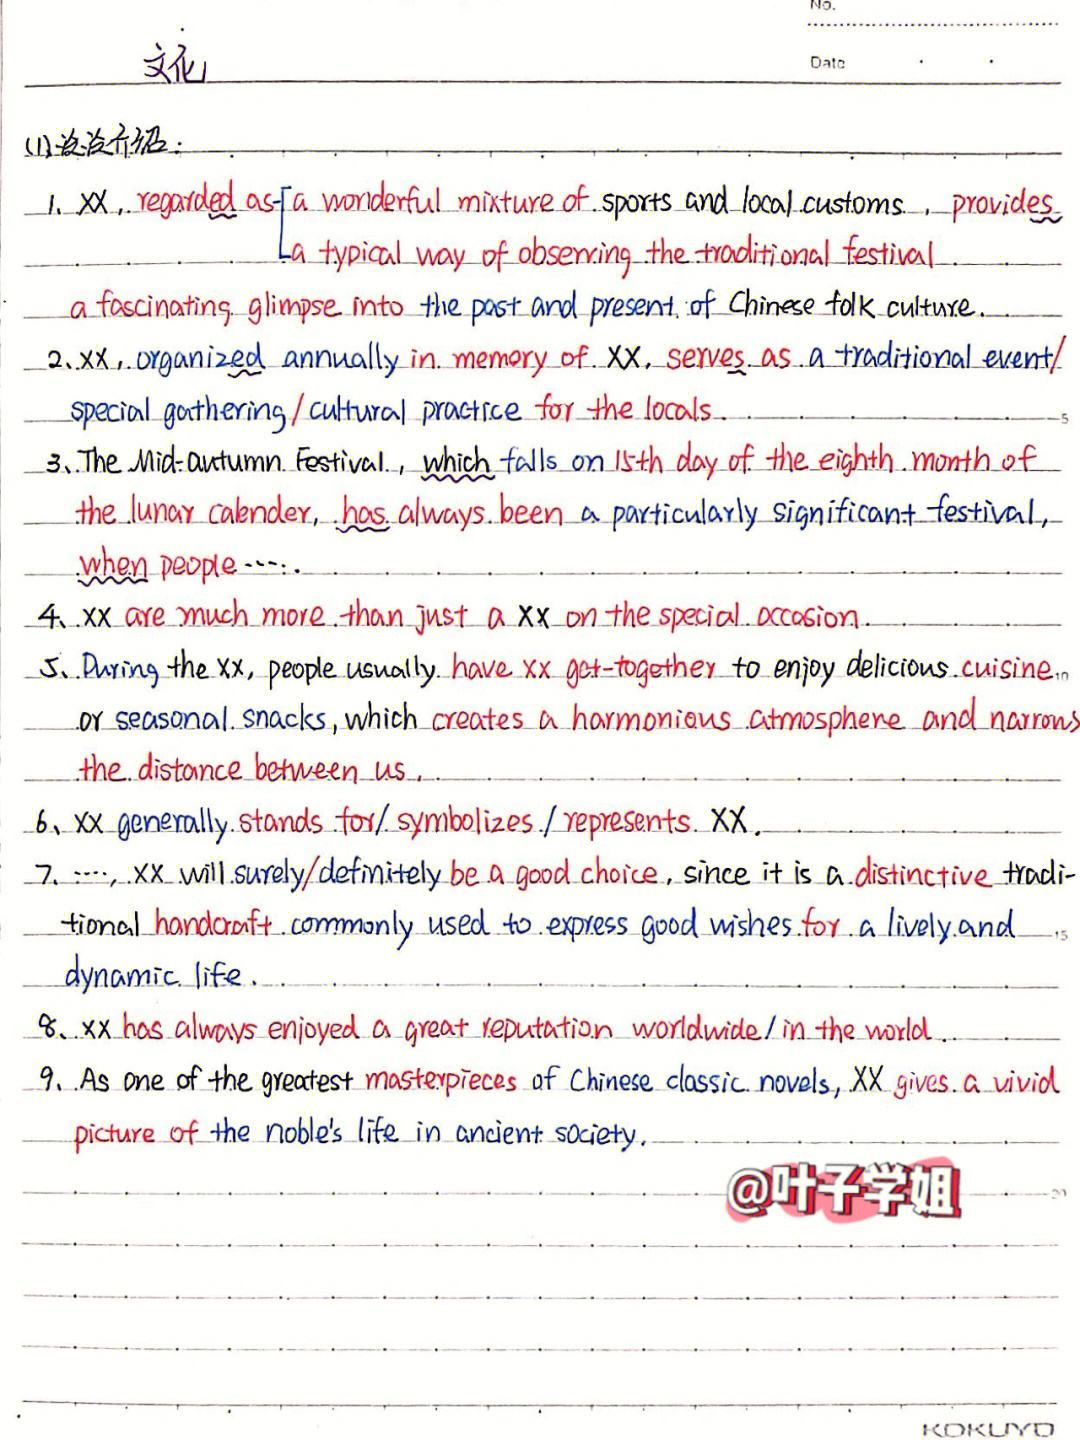 No.
文化
Date
(1)活动介绍:
1. XX, regarded as a wonderful mixture of sports and local customs, provides
a typical way of observing the traditional festival
a fascinating glimpse into the past and present of Chinese folk culture.
2、XX, organized annually in memory of XX, serves as a traditional event/
special gathering/cultural practice for the locals.
5
3、The Mid-autumn Festival, which falls on 15th day of the eighth month of
the lunar calender, has always been a particularly significant festival,
when people ·····.
4、XX are much more than just a XX on the special occasion.
5、During the XX, people usually have XX get-together to enjoy delicious cuisine
10
or seasonal snacks, which creates a harmonious atmosphere and narrows
the distance between us.
6、XX generally stands for/symbolizes/represents XX.
7. ····, XX will surely/definitely be a good choice, since it is a distinctive tradi-
tional handcraft commonly used to express good wishes for a lively and
15
dynamic life.
8、XX has always enjoyed a great reputation worldwide/in the world.
9. As one of the greatest masterpieces of Chinese classic novels, XX gives a vivid
picture of the noble's life in ancient society.
@叶子学姐
20
KOKUYO